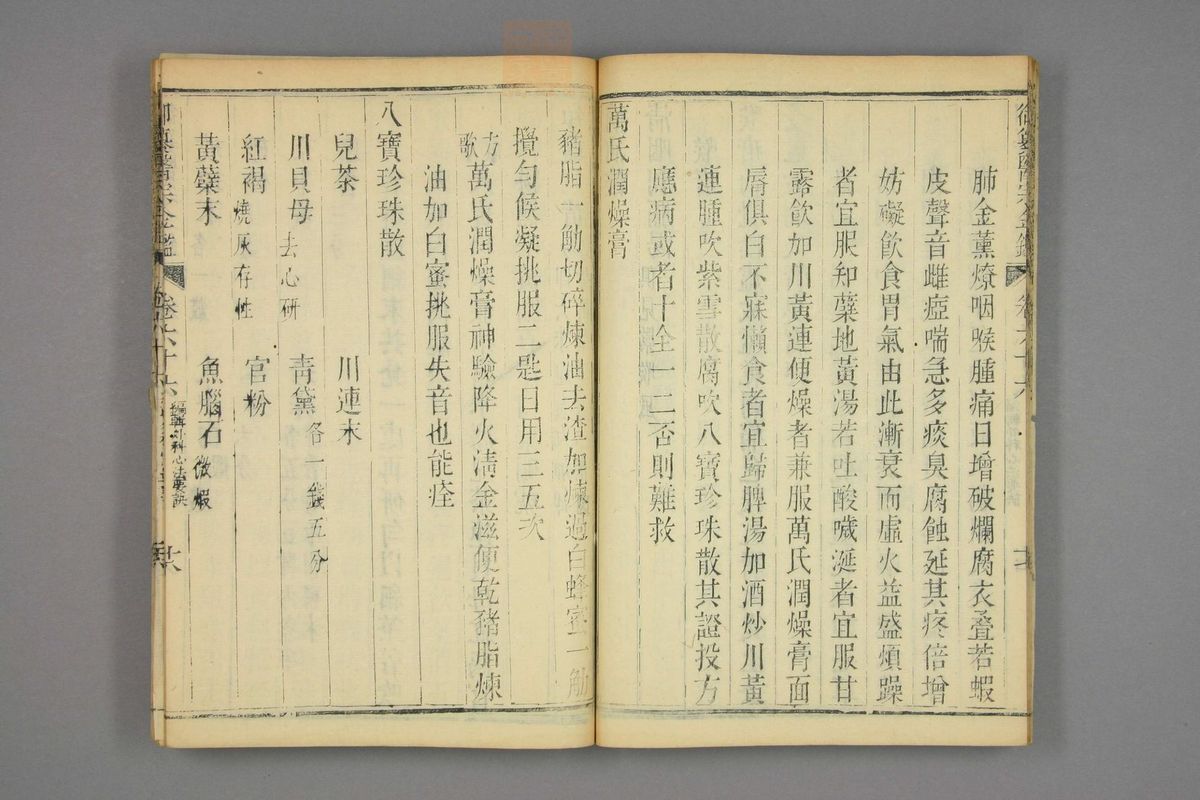 肺金薰燎咽喉腫痛日增破爛腐衣疊若蝦
皮聲音雌瘂喘急多痰臭腐蝕延其疼倍增
妨礙飲食胃氣由此漸衰而虛火益盛煩躁
者宜服知蘗地黃湯若吐酸噦涎者宜服甘
露飲加川黃連便燥者兼服萬氏潤燥膏面
唇俱白不寐懶食者宜歸脾湯加酒炒川黃
連腫吹紫雪散腐吹八寶珍珠散其證投方
應病或者十全一二否則難救
萬氏潤燥膏
豬脂一觔切碎煉油去渣加煉過白蜂蜜一觔
攪勻候凝挑服二匙日用三五次
方歌
萬氏潤燥膏神驗降火清金滋便乾豬脂煉
油加白蜜挑服失音也能痊
八寶珍珠散
兒茶 川連末
川貝母去心研 青黛各一錢五分
紅褐燒灰存性 官粉
黃蘗末 魚腦石微煆
御纂醫宗金鑑 卷六十六 編輯外科心法要訣